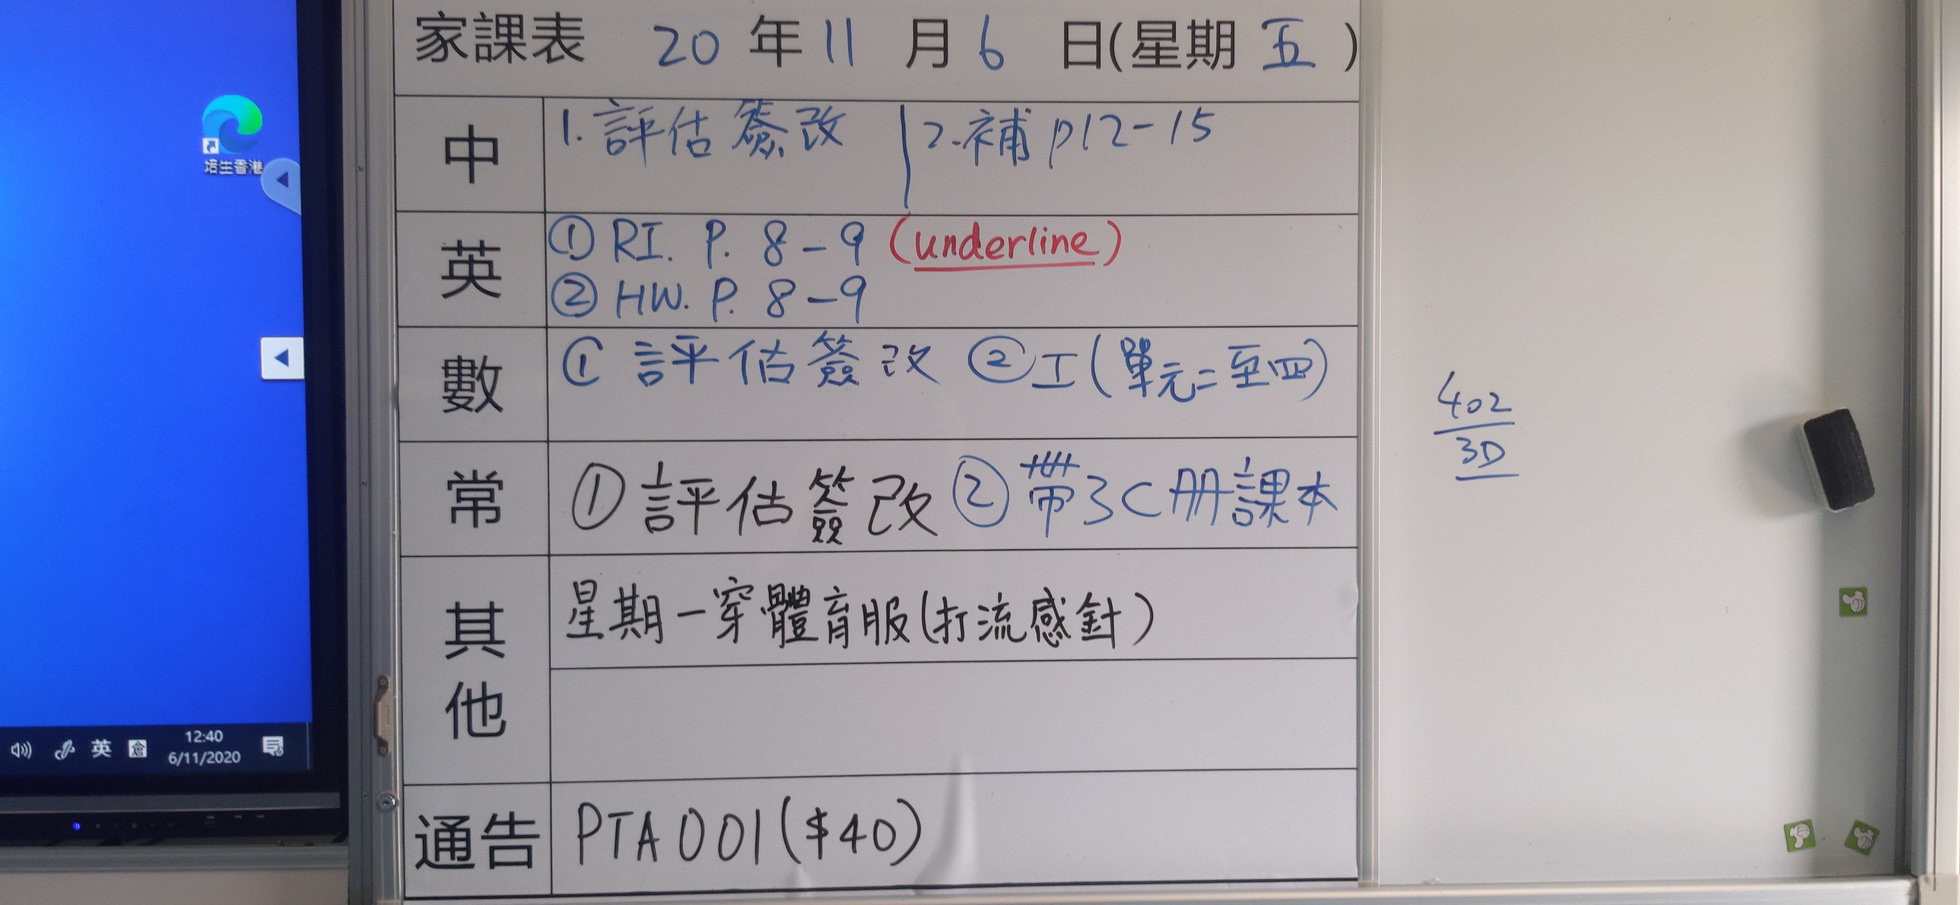 培生香港
英 倉
12:40
6/11/2020
家課表 20 年 11 月 6 日(星期 五 )
中 1. 評估簽改 2. 補 p12-15
英 ① RI. P. 8-9 (underline)
② HW. P. 8-9
數 ① 評估簽改 ②工(單元二至四)
常 ① 評估簽改 ② 帶3C冊課本
其他 星期一穿體育服(打流感針)
通告 PTA001($40)
402
3D